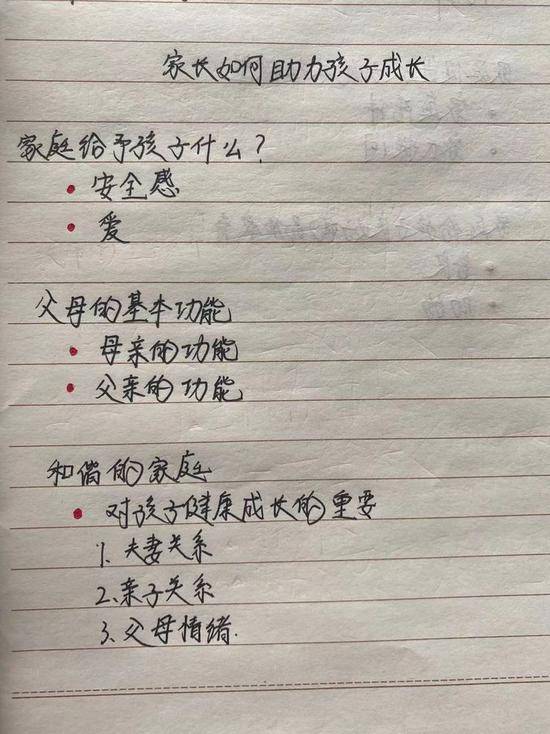 家长如何助力孩子成长
家庭给予孩子什么？
• 安全感
• 爱
父母的基本功能
• 母亲的功能
• 父亲的功能
和谐的家庭
• 对孩子健康成长的重要
1. 夫妻关系
2. 亲子关系
3、父母情绪.